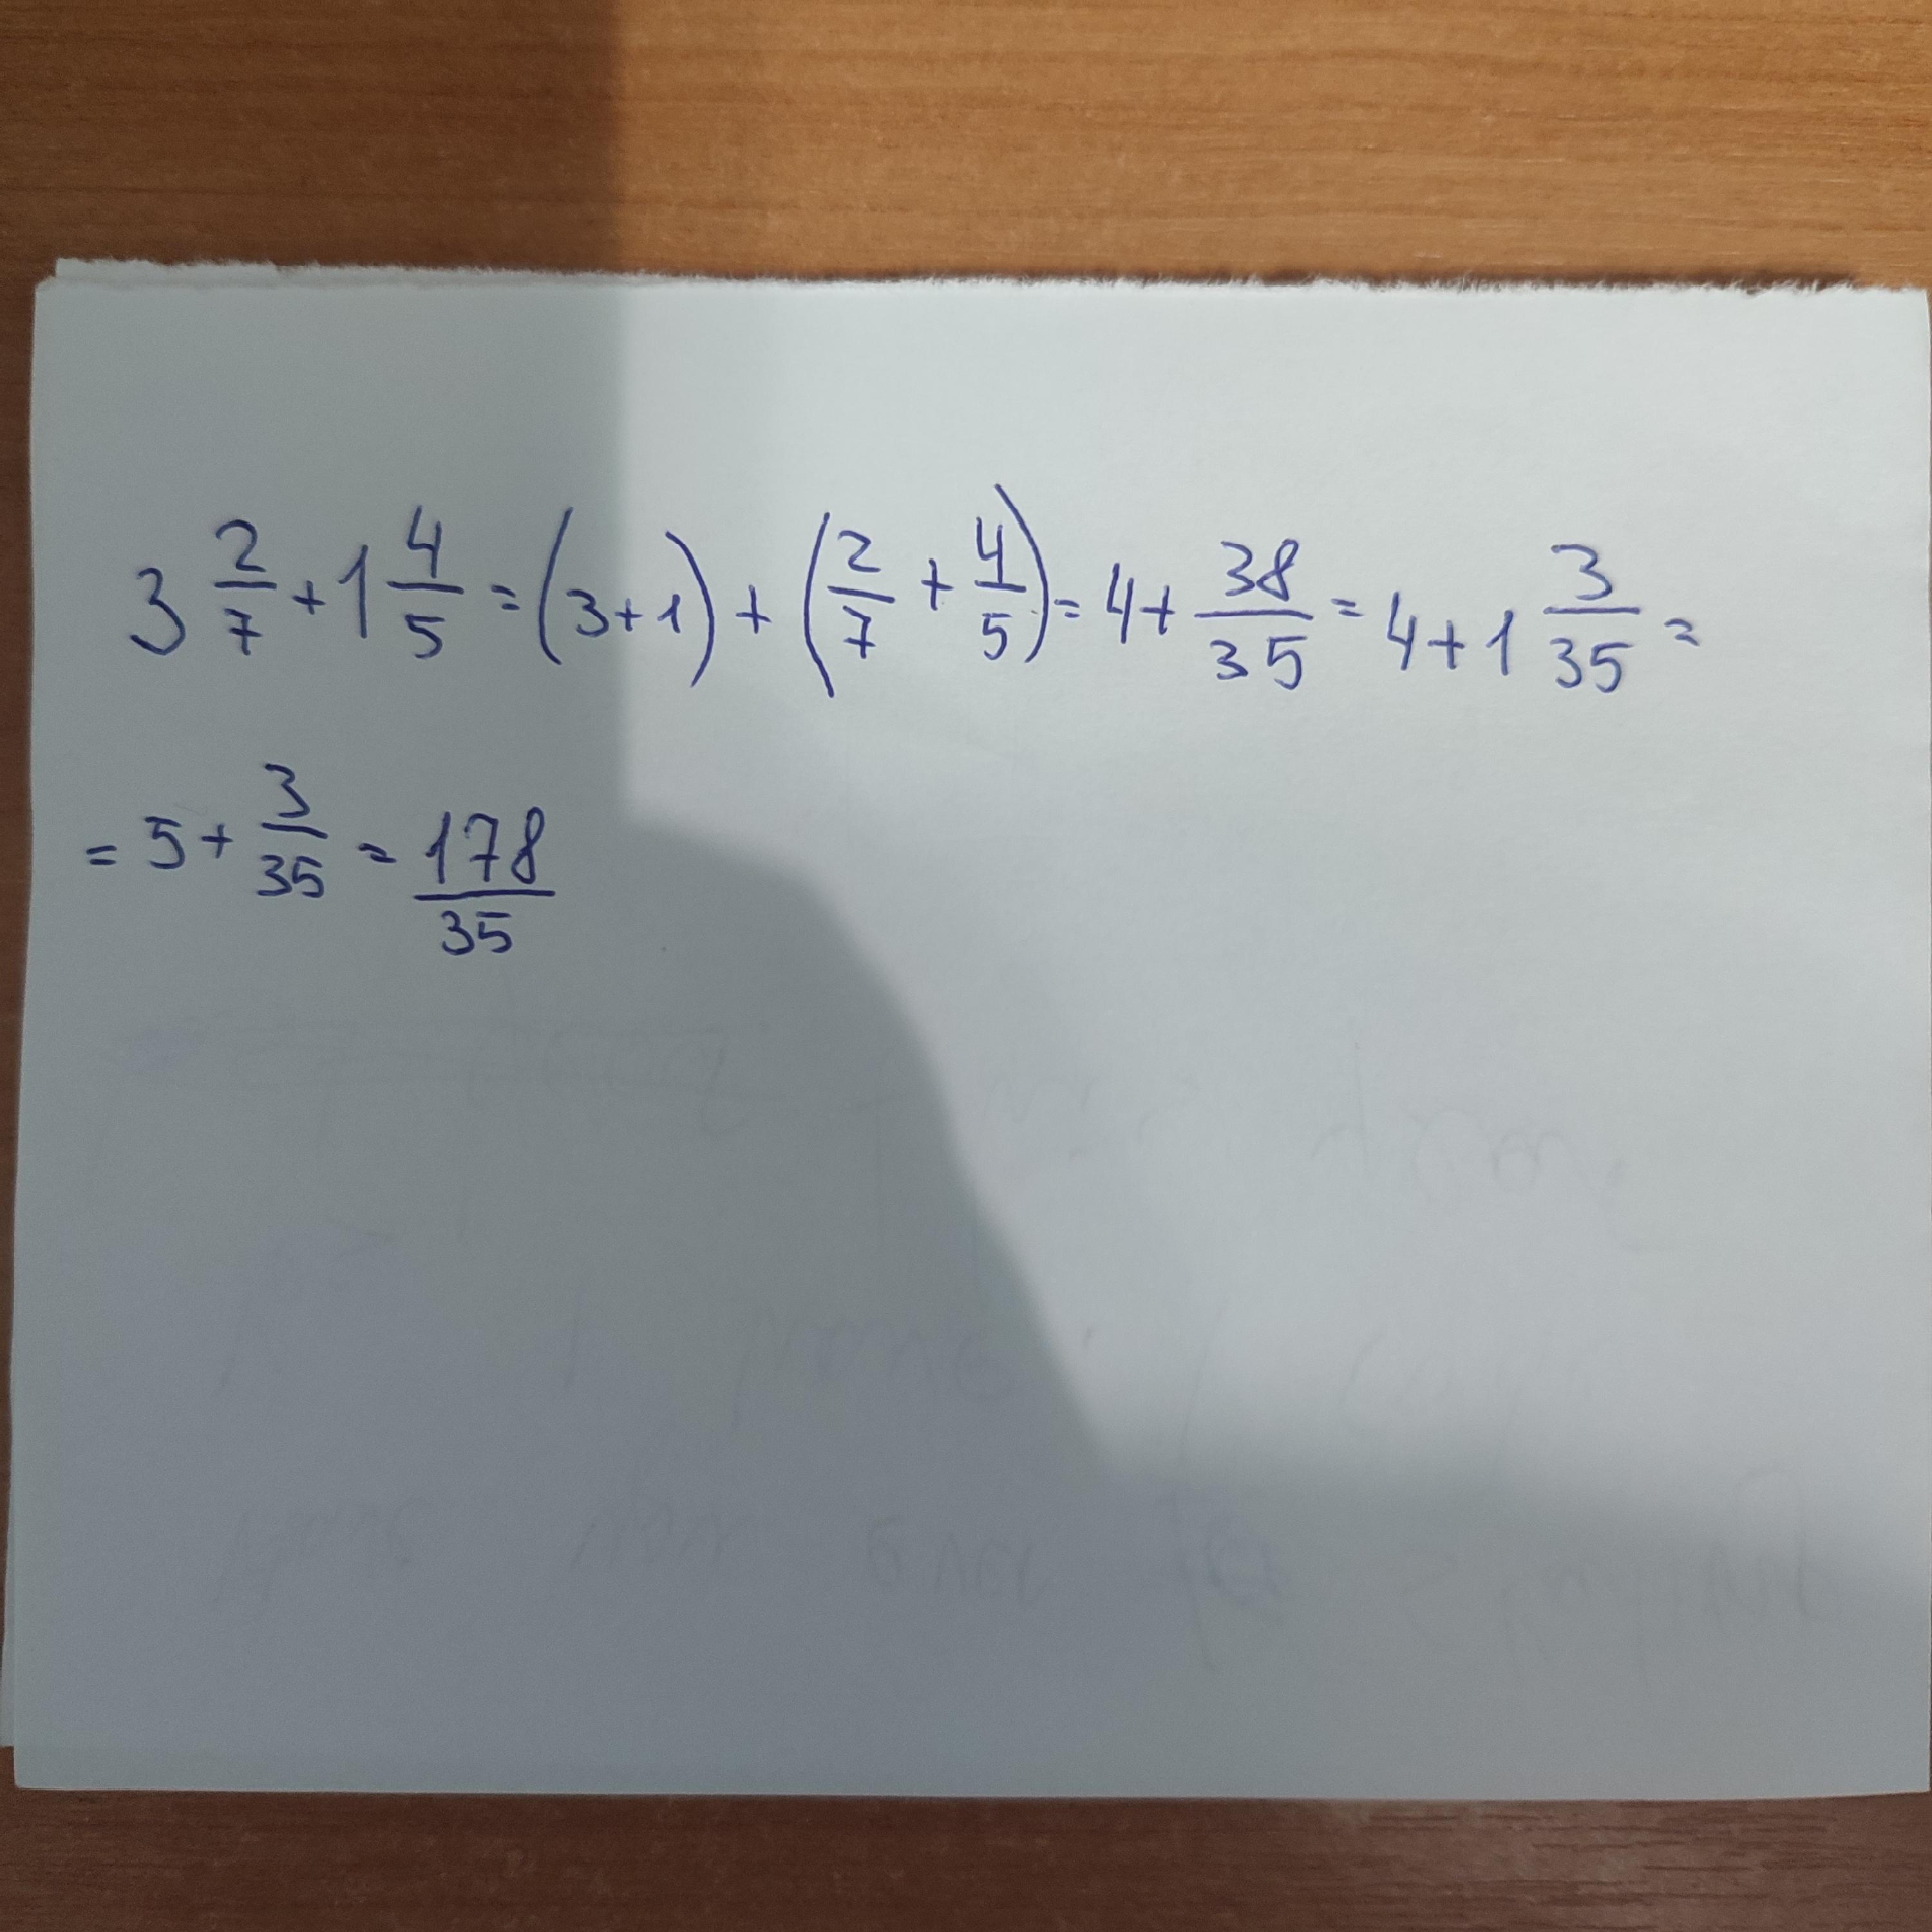 3 2/7 + 1 4/5 = (3+1) + (2/7 + 4/5) = 4 + 38/35 = 4 + 1 3/35 =
= 5 + 3/35 = 178/35